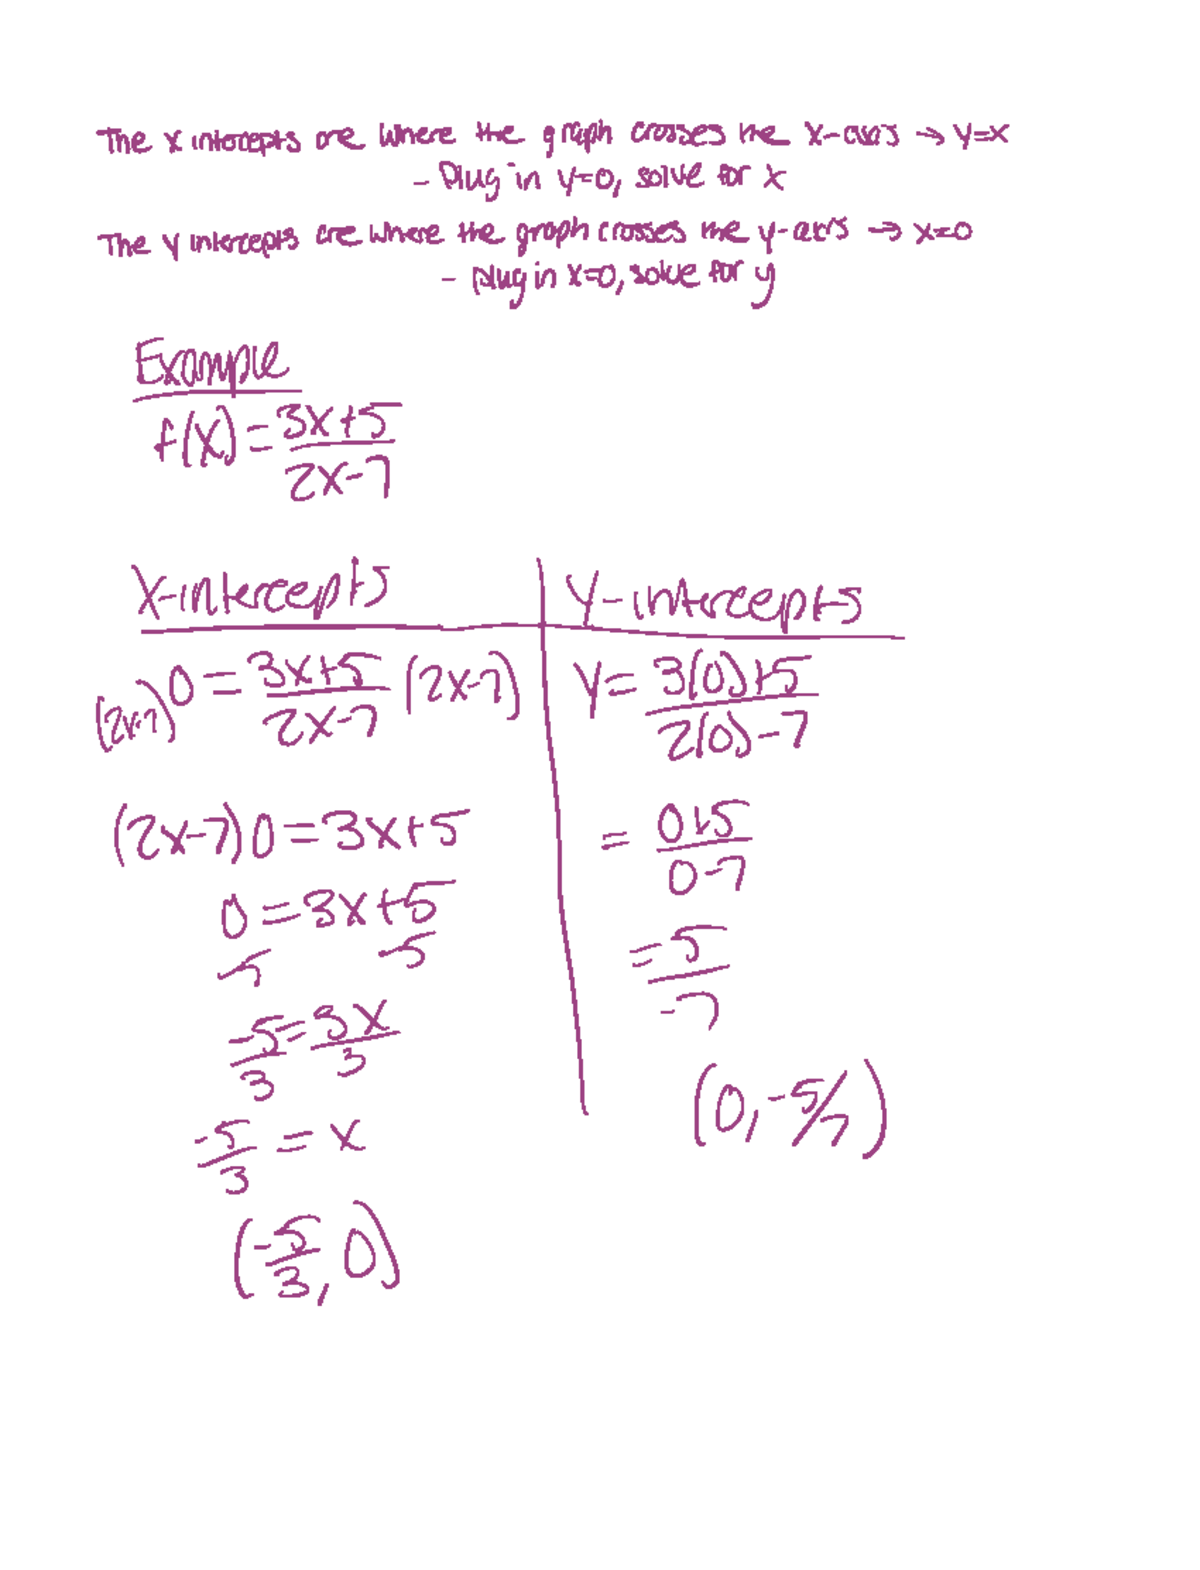 The x intercepts are where the graph crosses the x-axis → y=x
- Plug in y=0, solve for x
The y intercepts are where the graph crosses the y-axis → x=0
- plug in x=0, solve for y
Example
f(x) = 3x+5
2x-7
X-intercepts
(2x-7) 0 = 3x+5 (2x-7)
2x-7
(2x-7) 0 = 3x+5
0 = 3x+5
-5 -5
-5 = 3x
3 3
-5 = x
3
(-5/3, 0)
Y-intercepts
y = 3(0)+5
2(0)-7
= 0+5
0-7
= 5
-7
(0, -5/7)